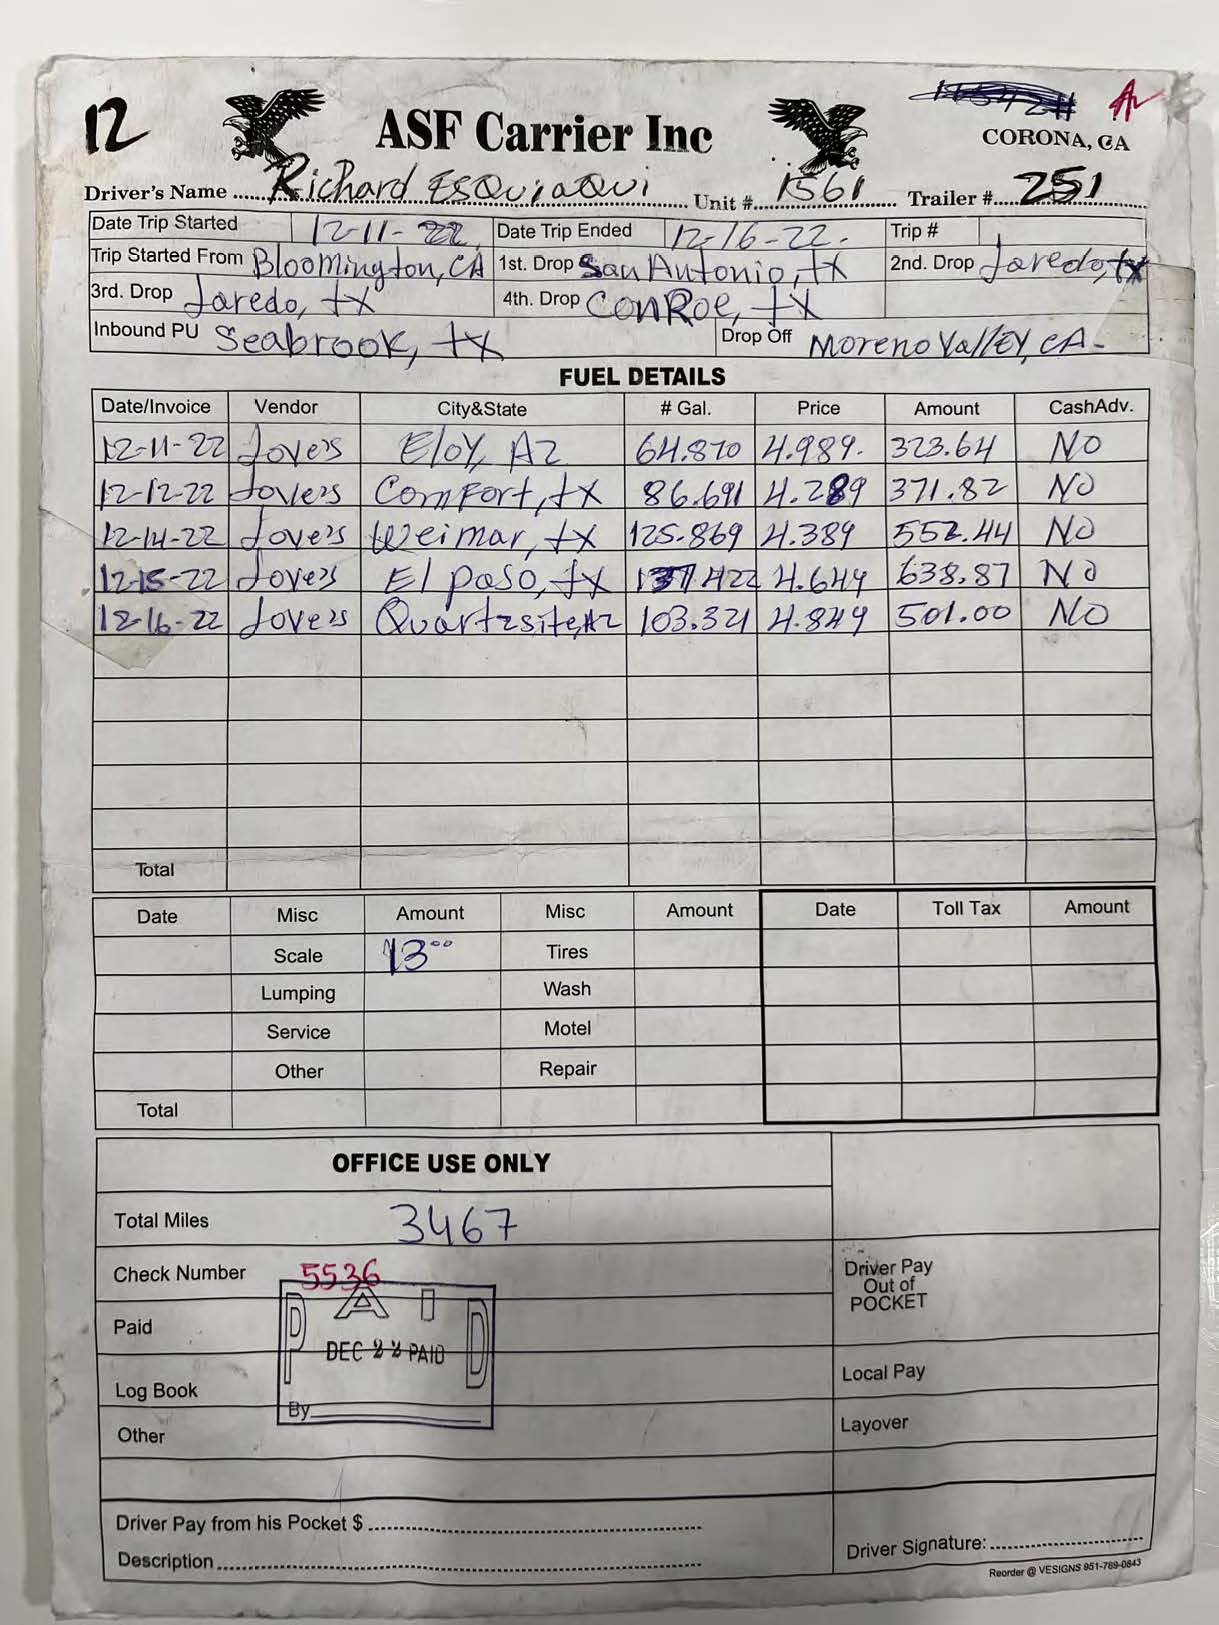 12
ASF Carrier Inc
CORONA, CA
Driver's Name Richard Esquiaqui Unit # 1561 Trailer # 251
Date Trip Started 12-11-22 Date Trip Ended 12-16-22. Trip #
Trip Started From Bloomington, CA 1st. Drop San Antonio, tx 2nd. Drop Laredo, tx
3rd. Drop Laredo, tx 4th. Drop Conroe, tx
Inbound PU Seabrook, tx Drop Off Moreno Valley, CA-
FUEL DETAILS
Date/Invoice Vendor City&State # Gal. Price Amount CashAdv.
12-11-22 Love's Eloy, AZ 64.870 4.989. 323.64 NO
12-12-22 Love's Comfort, tx 86.691 4.289 371.82 NO
12-14-22 Love's Weimar, tx 125.869 4.389 552.44 NO
12-15-22 Love's El paso, tx 137.422 4.649 638.87 NO
12-16-22 Love's Quartzsite, AZ 103.321 4.849 501.00 NO
Total
Date Misc Amount Misc Amount Date Toll Tax Amount
Scale 13.00 Tires
Lumping Wash
Service Motel
Other Repair
Total
OFFICE USE ONLY
Total Miles 3467
Check Number 5536
Driver Pay Out of POCKET
Paid
PAID
DEC 22 PAID
By
Log Book
Local Pay
Other
Layover
Driver Pay from his Pocket $
Description
Driver Signature:
Reorder @ VESIGNS 951-789-0843